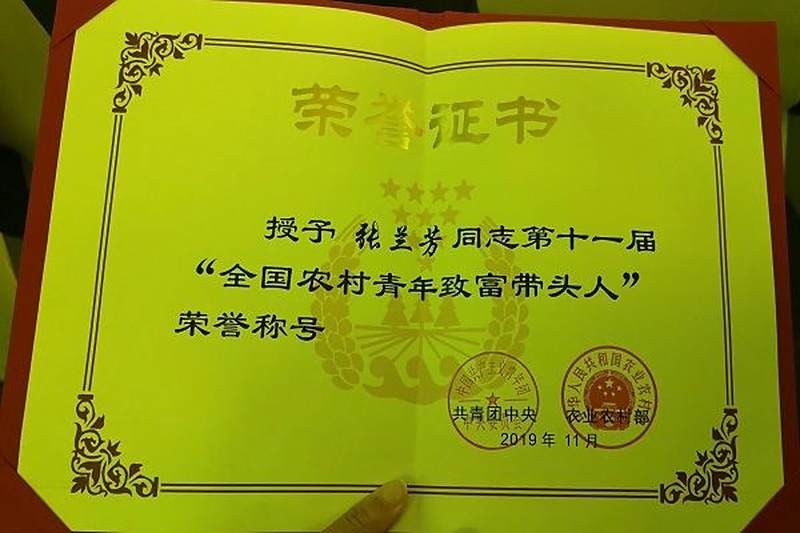 荣誉证书
授予 张兰芳 同志第十一届
“全国农村青年致富带头人”
荣誉称号
中国共产主义青年团
中央委员会
中华人民共和国农业农村部
共青团中央 农业农村部
2019年11月